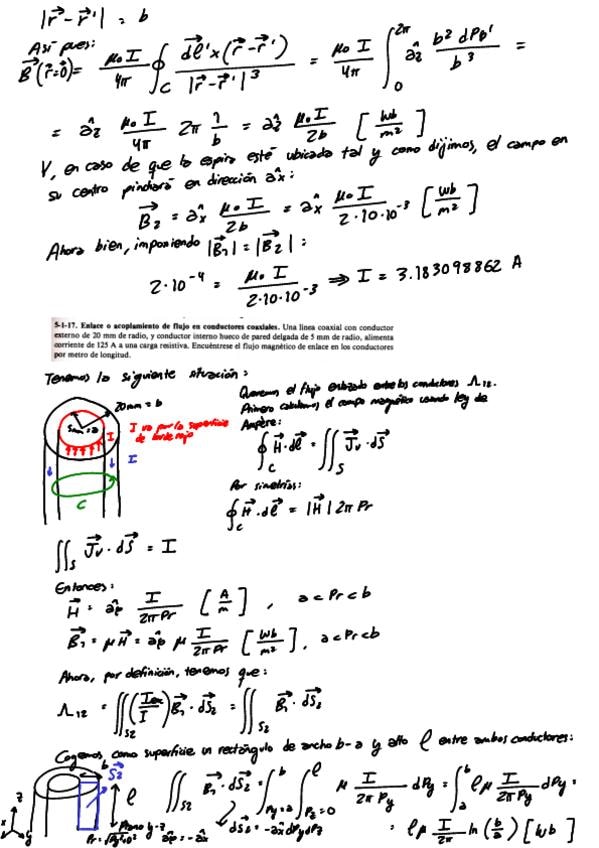 |r⃗ - r⃗'| = b
Así pues:
B⃗(r⃗=0⃗) = μ₀I/4π ∮_C dl⃗'×(r⃗-r⃗')/|r⃗-r⃗'|³ = μ₀I/4π ∫₀^{2π} âz b² dPφ'/b³ =
= âz μ₀I/4π 2π 1/b = âz μ₀I/2b [Wb/m²]
Y, en caso de que la espira esté ubicada tal y como dijimos, el campo en
su centro pinchará en dirección âx:
B⃗₂ = âx μ₀I/2b = âx μ₀I/2·10·10⁻³ [Wb/m²]
Ahora bien, imponiendo |B⃗₁| = |B⃗₂|:
2·10⁻⁴ = μ₀I/2·10·10⁻³ ⇒ I = 3.183098862 A
5-1-17. Enlace o acoplamiento de flujo en conductores coaxiales. Una línea coaxial con conductor
externo de 20 mm de radio, y conductor interno hueco de pared delgada de 5 mm de radio, alimenta
corriente de 125 A a una carga resistiva. Encuéntrese el flujo magnético de enlace en los conductores
por metro de longitud.
Tenemos la siguiente situación:
20mm = b
5mm=a
I
I va por la superficie
de borde rojo
I
C
Queremos el flujo enlazado entre los conductores Λ₁₂.
Primero calculamos el campo magnético usando ley de
Ampère:
∮_C H⃗·dl⃗ = ∬_S J⃗v·dS⃗
Por simetrías:
∮_C H⃗·dl⃗ = |H⃗| 2π Pr
∬_S J⃗v·dS⃗ = I
Entonces:
H⃗ = âφ I/2πPr [A/m], a<Pr<b
B⃗₁ = μH⃗ = âφ μ I/2πPr [Wb/m²], a<Pr<b
Ahora, por definición, tenemos que:
Λ₁₂ = ∬_{S2} (Ienc/I) B⃗₁·dS⃗₂ = ∬_{S2} B⃗₁·dS⃗₂
Cogemos como superficie un rectángulo de ancho b-a y alto l entre ambos conductores:
z
x
y
b
S⃗₂
l
Plano y-z
âφ=-âx
∬_{S2} B⃗₁·dS⃗₂ = ∫_{Py=a}^{b} ∫_{Pz=0}^{l} μ I/2πPy dPy = ∫_a^b lμ I/2πPy dPy =
dS⃗₂ = -âx dPydPz
= lμ I/2π ln(b/a) [Wb]